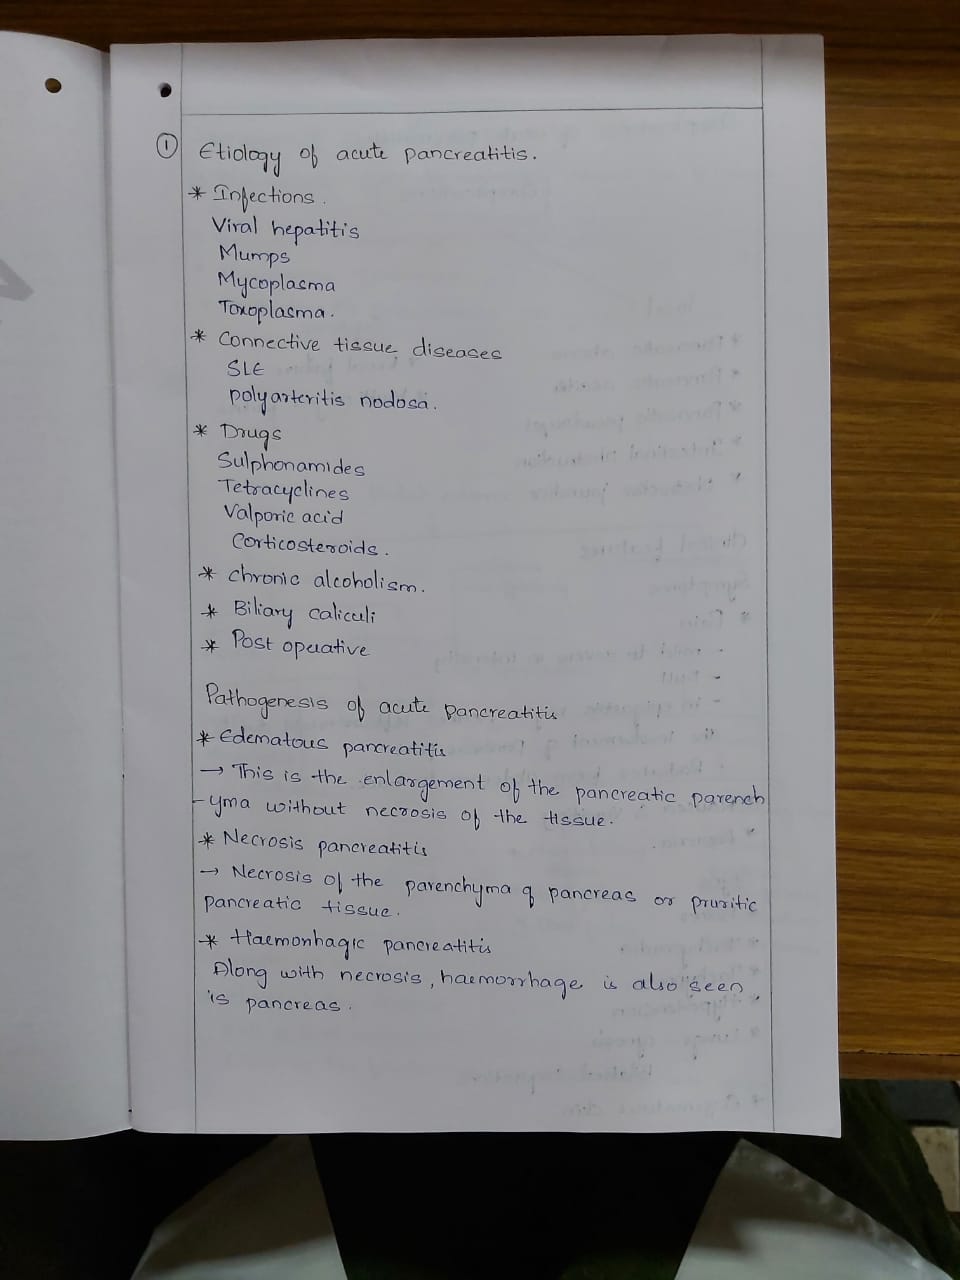 ① Etiology of acute pancreatitis.
* Infections.
Viral hepatitis
Mumps
Mycoplasma
Toxoplasma.
* Connective tissue diseases
SLE
polyarteritis nodosa.
* Drugs
Sulphonamides
Tetracyclines
Valporic acid
Corticosteroids.
* chronic alcoholism.
* Biliary caliculi
* Post operative
Pathogenesis of acute pancreatitis
* Edematous pancreatitis
→ This is the enlargement of the pancreatic parench
-yma without necrosis of the tissue.
* Necrosis pancreatitis
→ Necrosis of the parenchyma of pancreas or pruritic
pancreatic tissue.
* Haemorrhagic pancreatitis
Along with necrosis, haemorrhage is also seen
is pancreas.